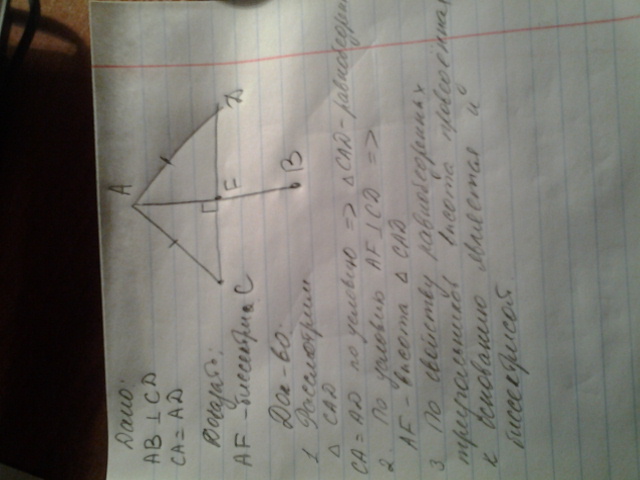 Дано:
AB ⊥ CD
CA = AD
Доказать:
AF - биссектриса
A
D
F
B
C
Док-во:
1 Рассмотрим
△ CAD
CA = AD по условию => △ CAD - равнобедрен
2. По условию AF ⊥ CD =>
AF - высота △ CAD
3 По свойству равнобедренных
треугольников высота проведённая
к основанию является и
биссектрисой.